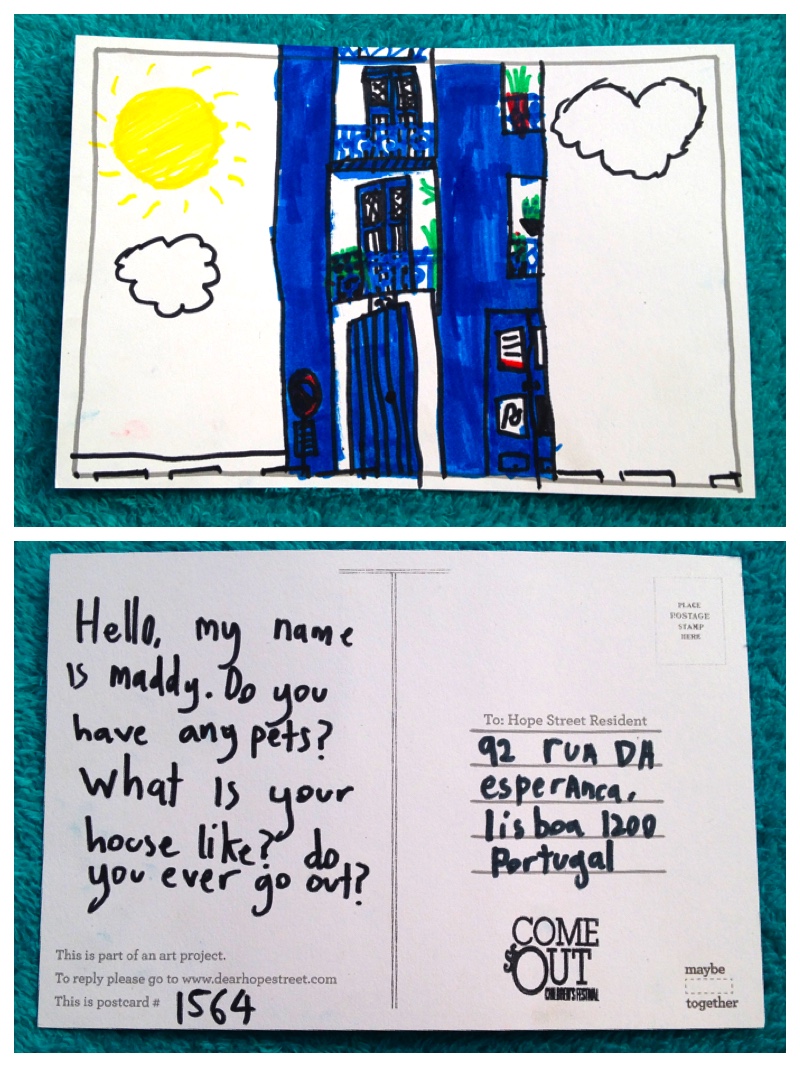 Hello, my name
is maddy. Do you
have any pets?
What is your
house like? do
you ever go out?
This is part of an art project.
To reply please go to www.dearhopestreet.com
This is postcard # 1564
PLACE
POSTAGE
STAMP
HERE
To: Hope Street Resident
92 rua DA
esperanca,
lisboa 1200
Portugal
COME
OUT
CHILDREN'S FESTIVAL
maybe
together